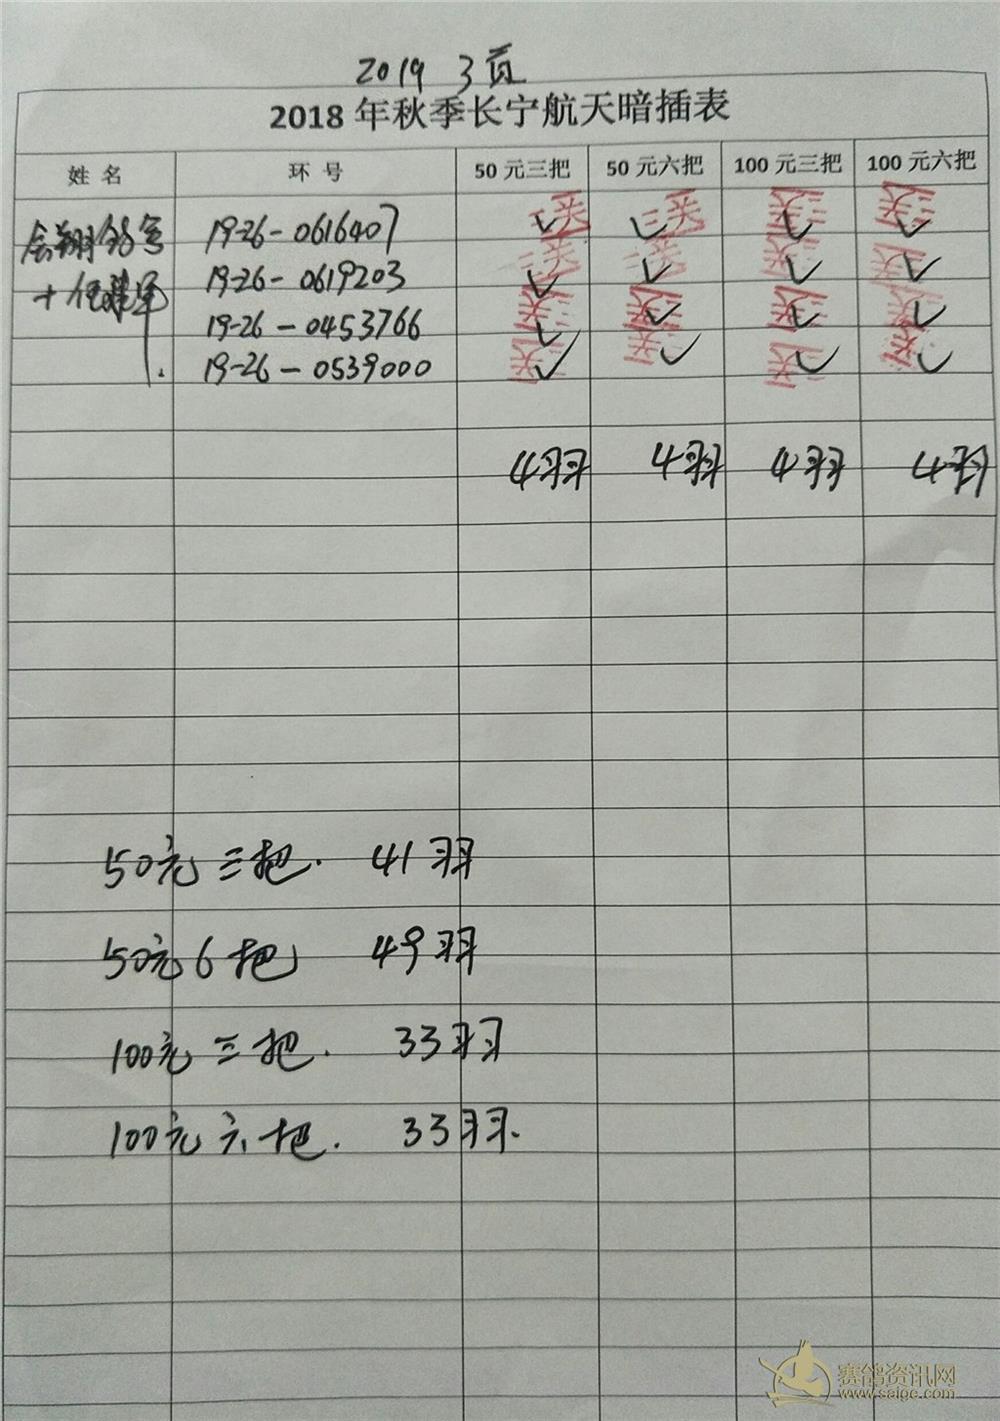 2019 3页
2018 年秋季长宁航天暗插表
姓 名 环 号 50 元三把 50 元六把 100 元三把 100 元六把
19-26-0616407 三关 ✓ 三关 ✓ 三关 ✓ 三关 ✓
19-26-0619203 三关 ✓ 三关 ✓ 三关 ✓ 三关 ✓
19-26-0453766 三关 ✓ 三关 ✓ 三关 ✓ 三关 ✓
19-26-0539000 三关 ✓ 三关 ✓ 三关 ✓ 三关 ✓
4羽 4羽 4羽 4羽
50元三把. 41羽
50元6把 49羽
100元三把. 33羽
100元六把. 33羽.
赛鸽资讯网
www.saige.com